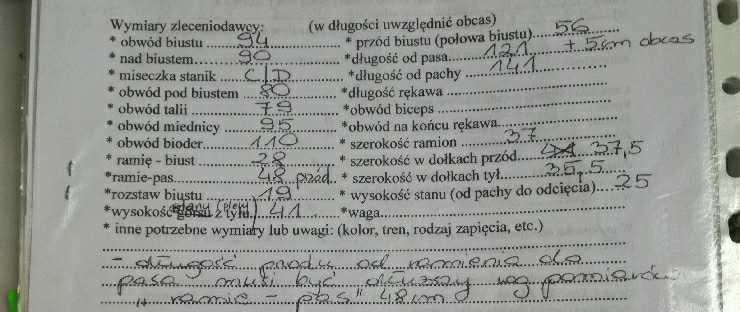 Wymiary zleceniodawcy: (w długości uwzględnić obcas)
* obwód biustu 94 * przód biustu (połowa biustu) 56
* nad biustem 90 *długość od pasa 121 + 5cm obcas
* miseczka stanik C/D *długość od pachy 141
* obwód pod biustem 80 *długość rękawa
* obwód talii 79 *obwód biceps
* obwód miednicy 95 *obwód na końcu rękawa
* obwód bioder 110 * szerokość ramion 37
* ramię - biust 28 * szerokość w dołkach przód 37,5
*ramie-pas 48 przód * szerokość w dołkach tył 35,5
*rozstaw biustu 19 * wysokość stanu (od pachy do odcięcia) 25
*wysokość z tyłu 41 *waga
* inne potrzebne wymiary lub uwagi: (kolor, tren, rodzaj zapięcia, etc.)
- długość przodu od ramienia do
pasa musi być dłuższy wg pomiarów
" ramię - pas" 48 cm